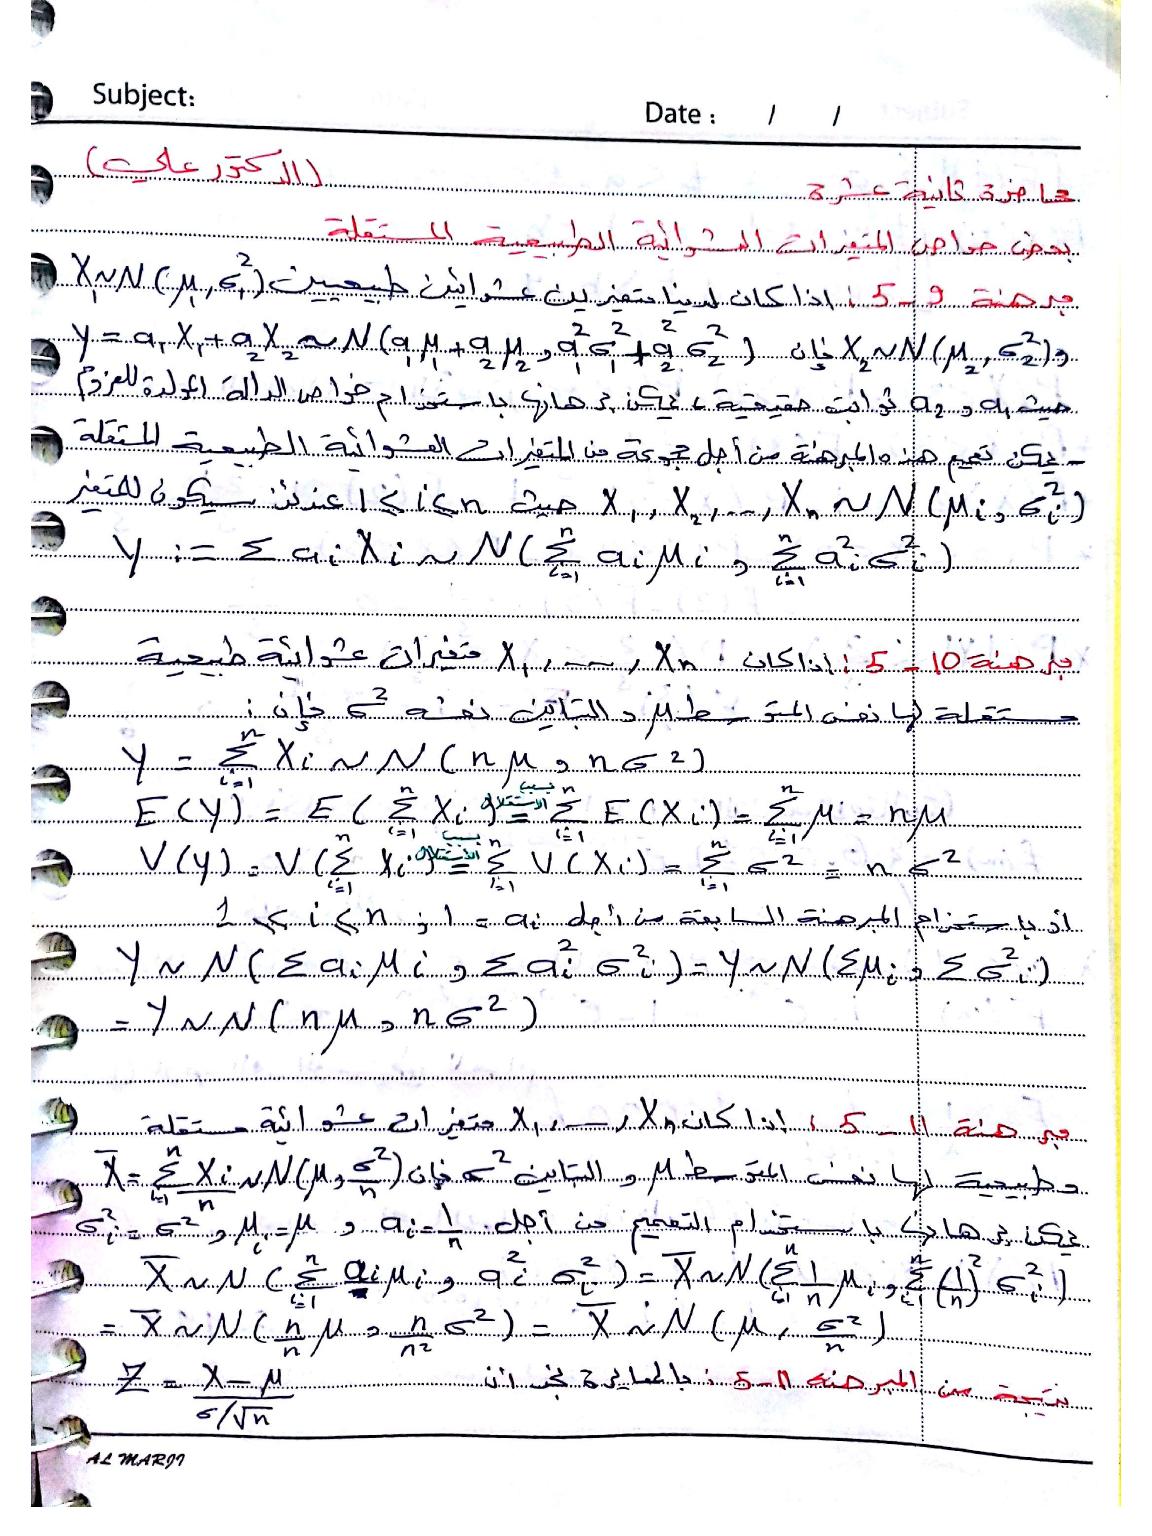 Subject:
Date : / /
محاضرة ثانية عشرة (الدكتور علي)
بعض خواص المتغيرات العشوائية الطبيعية المستقلة
مبرهنة 9-5 : إذا كان لدينا متغيرين عشوائين طبيعيين X₁~N(μ₁, σ₁²)
و X₂~N(μ₂, σ₂²) فإن Y = a₁X₁ + a₂X₂ ~ N(a₁μ₁ + a₂μ₂ , a₁²σ₁² + a₂²σ₂²)
حيث a₁ و a₂ ثوابت حقيقية ، يمكن برهانها باستخدام خواص الدالة المولدة للعزوم
- يمكن تعميم هذه المبرهنة من أجل مجموعة من المتغيرات العشوائية الطبيعية المستقلة
X₁, X₂, ..., Xₙ ~ N(μᵢ, σᵢ²) حيث 1≤i≤n عندئذ سيكون للمتغير
Y := Σ aᵢ Xᵢ ~ N(Σᵢ₌₁ⁿ aᵢ μᵢ , Σᵢ₌₁ⁿ aᵢ² σᵢ²)
مبرهنة 10-5 : إذا كان X₁, ..., Xₙ متغيرات عشوائية طبيعية
مستقلة لها نفس المتوسط μ و التباين نفسه σ² فإن :
Y = Σᵢ₌₁ⁿ Xᵢ ~ N(nμ , nσ²)
E(Y) = E(Σᵢ₌₁ⁿ Xᵢ) =بسبب الاستقلال Σᵢ₌₁ⁿ E(Xᵢ) = Σᵢ₌₁ⁿ μ = nμ
V(Y) = V(Σᵢ₌₁ⁿ Xᵢ) =بسبب الاستقلال Σᵢ₌₁ⁿ V(Xᵢ) = Σᵢ₌₁ⁿ σ² = nσ²
أو باستخدام المبرهنة السابقة من أجل aᵢ = 1 ; 1≤i≤n
Y ~ N(Σ aᵢ μᵢ , Σ aᵢ² σᵢ²) = Y ~ N(Σμᵢ , Σ σᵢ²)
= Y ~ N(nμ , nσ²)
مبرهنة 11-5 : إذا كان X₁, ..., Xₙ متغيرات عشوائية مستقلة
وطبيعية لها نفس المتوسط μ و التباين σ² فإن X̄ = Σᵢ₌₁ⁿ Xᵢ/n ~ N(μ, σ²/n)
يمكن برهانها باستخدام التعميم من أجل aᵢ = 1/n و μᵢ = μ , σᵢ² = σ²
X̄ ~ N(Σᵢ₌₁ⁿ aᵢ μᵢ , aᵢ² σᵢ²) = X̄ ~ N(Σᵢ₌₁ⁿ 1/n μᵢ , Σᵢ₌₁ⁿ (1/n)² σᵢ²)
= X̄ ~ N(n/n μ , n/n² σ²) = X̄ ~ N(μ, σ²/n)
نتيجة من المبرهنة 11-5 : بالمعايرة نجد أن Z = X-μ / σ/√n
AL MARJI